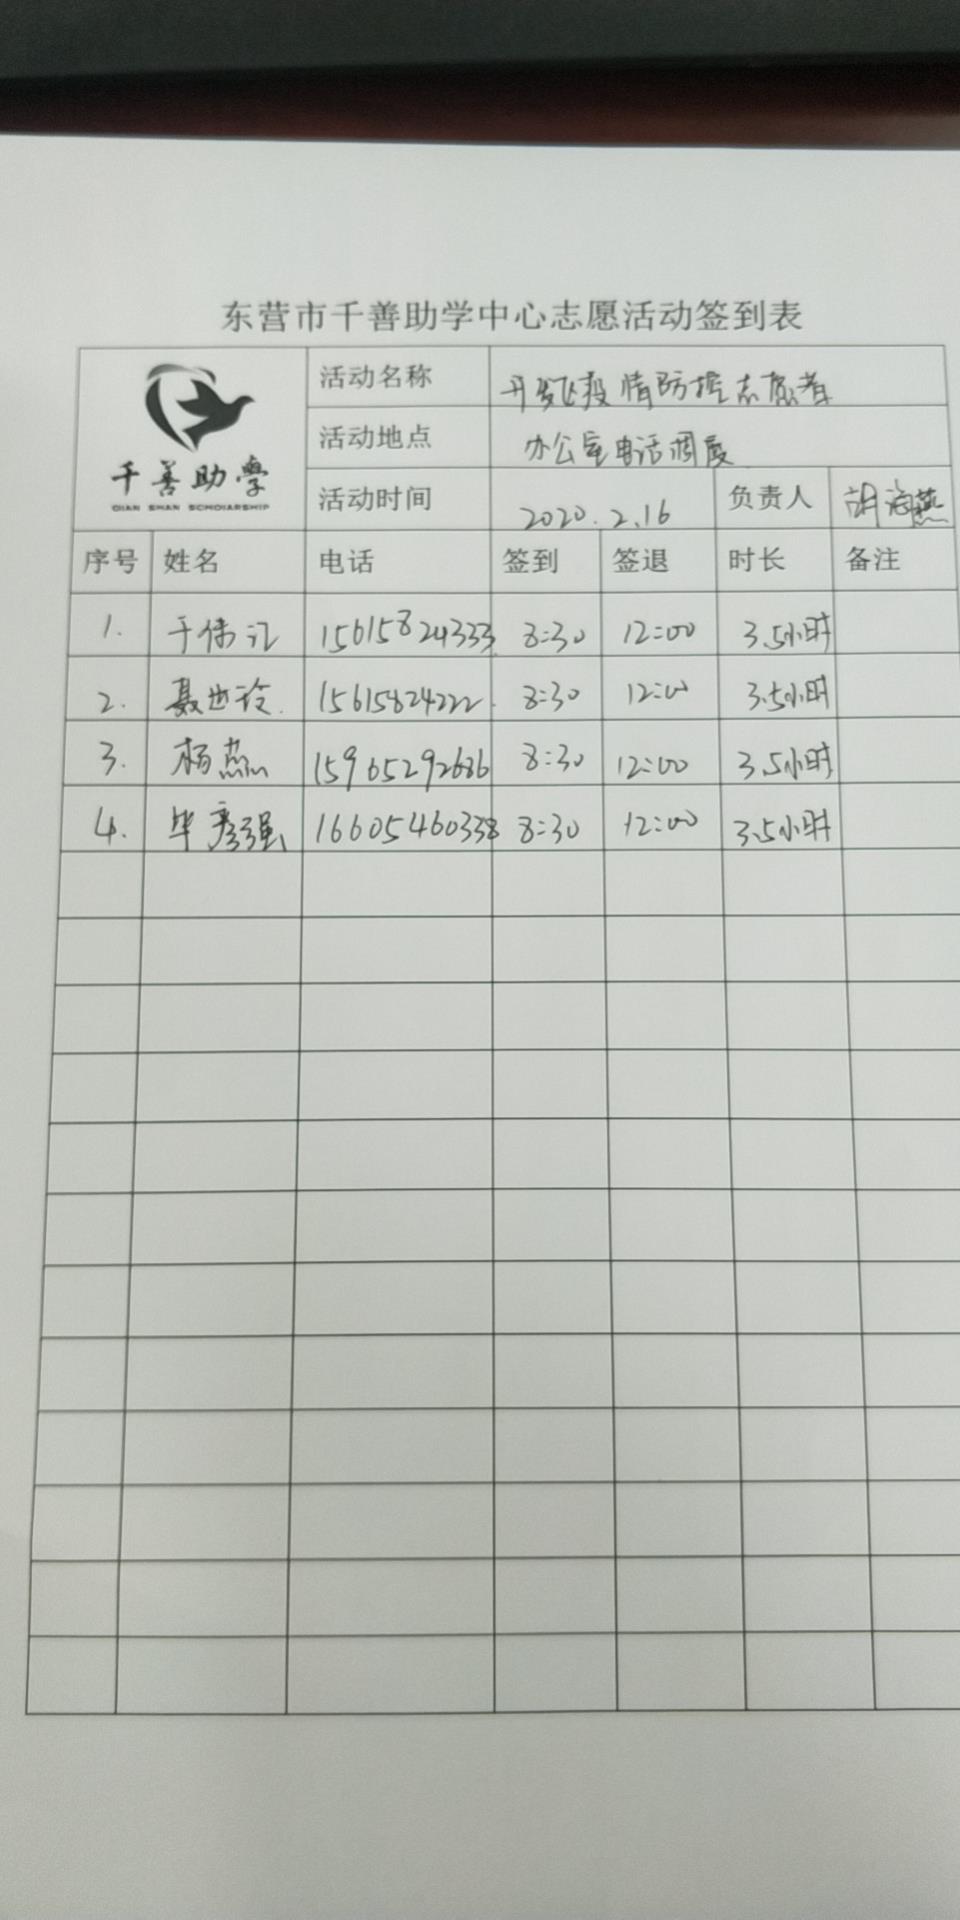 东营市千善助学中心志愿活动签到表
千善助学
QIAN SHAN SCHOIARSHIP
活动名称 开发区疫情防控志愿者
活动地点 办公室电话调度
活动时间 2020.2.16 负责人 胡海燕
序号 姓名 电话 签到 签退 时长 备注
1. 于伟 15615824333 8:30 12:00 3.5小时
2. 聂世玲 15615824222 8:30 12:00 3.5小时
3. 杨燕 15965292686 8:30 12:00 3.5小时
4. 毕彦强 16605460338 8:30 12:00 3.5小时